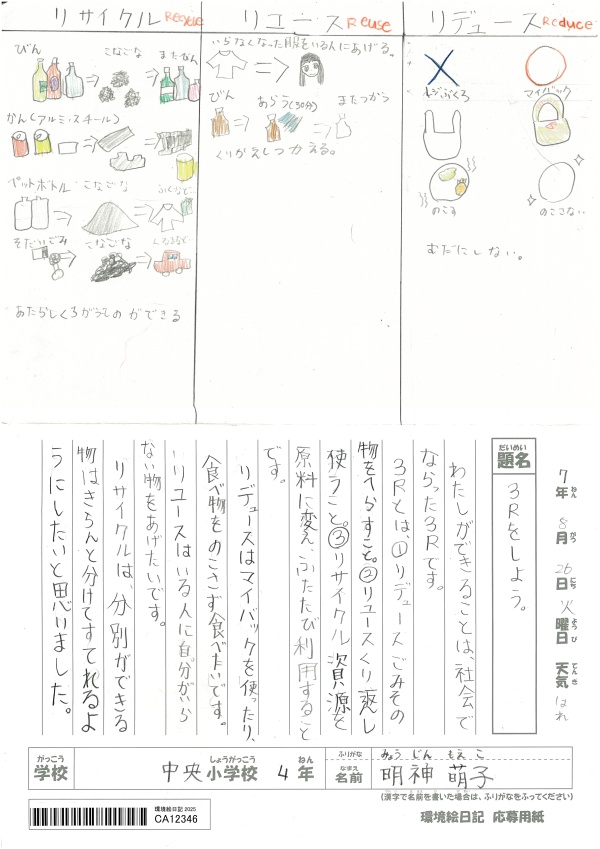 リサイクル Recycle
びん こなごな またびん
かん(アルミ・スチール)
ペットボトル こなごな ふくなど
そだいごみ こなごな くるまなど
あたらしくろがうものができる
リユース Reuse
いらなくなった服をいる人にあげる。
びん あらう(30分) またつかう
くりかえしつかえる。
リデュース Reduce
レジぶくろ マイバック
のこす のこさない
むだにしない。
7年 8月 26日 火曜日 天気 はれ
ねん がつ にち ようび てんき
だいめい
題名 3Rをしよう。
わたしができることは、社会で
ならった3Rです。
3Rとは、①リデュースごみその
物をへらすこと。②リユースくり返し
使うこと。③リサイクル資源を
原料に変え、ふたたび利用すること
です。
リデュースはマイバックを使ったり、
食べ物をのこさず食べたいです。
リユースはいる人に自分がいら
ない物をあげたいです。
リサイクルは、分別ができる
物はきちんと分けてすてれるよ
うにしたいと思いました。
がっこう しょうがっこう ねん
学校 中央小学校 4年
ふりがな みょうじん もえこ
なまえ
名前 明神 萌子
(漢字で名前を書いた場合は、ふりがなをふってください)
環境絵日記 2025
CA12346
環境絵日記 応募用紙